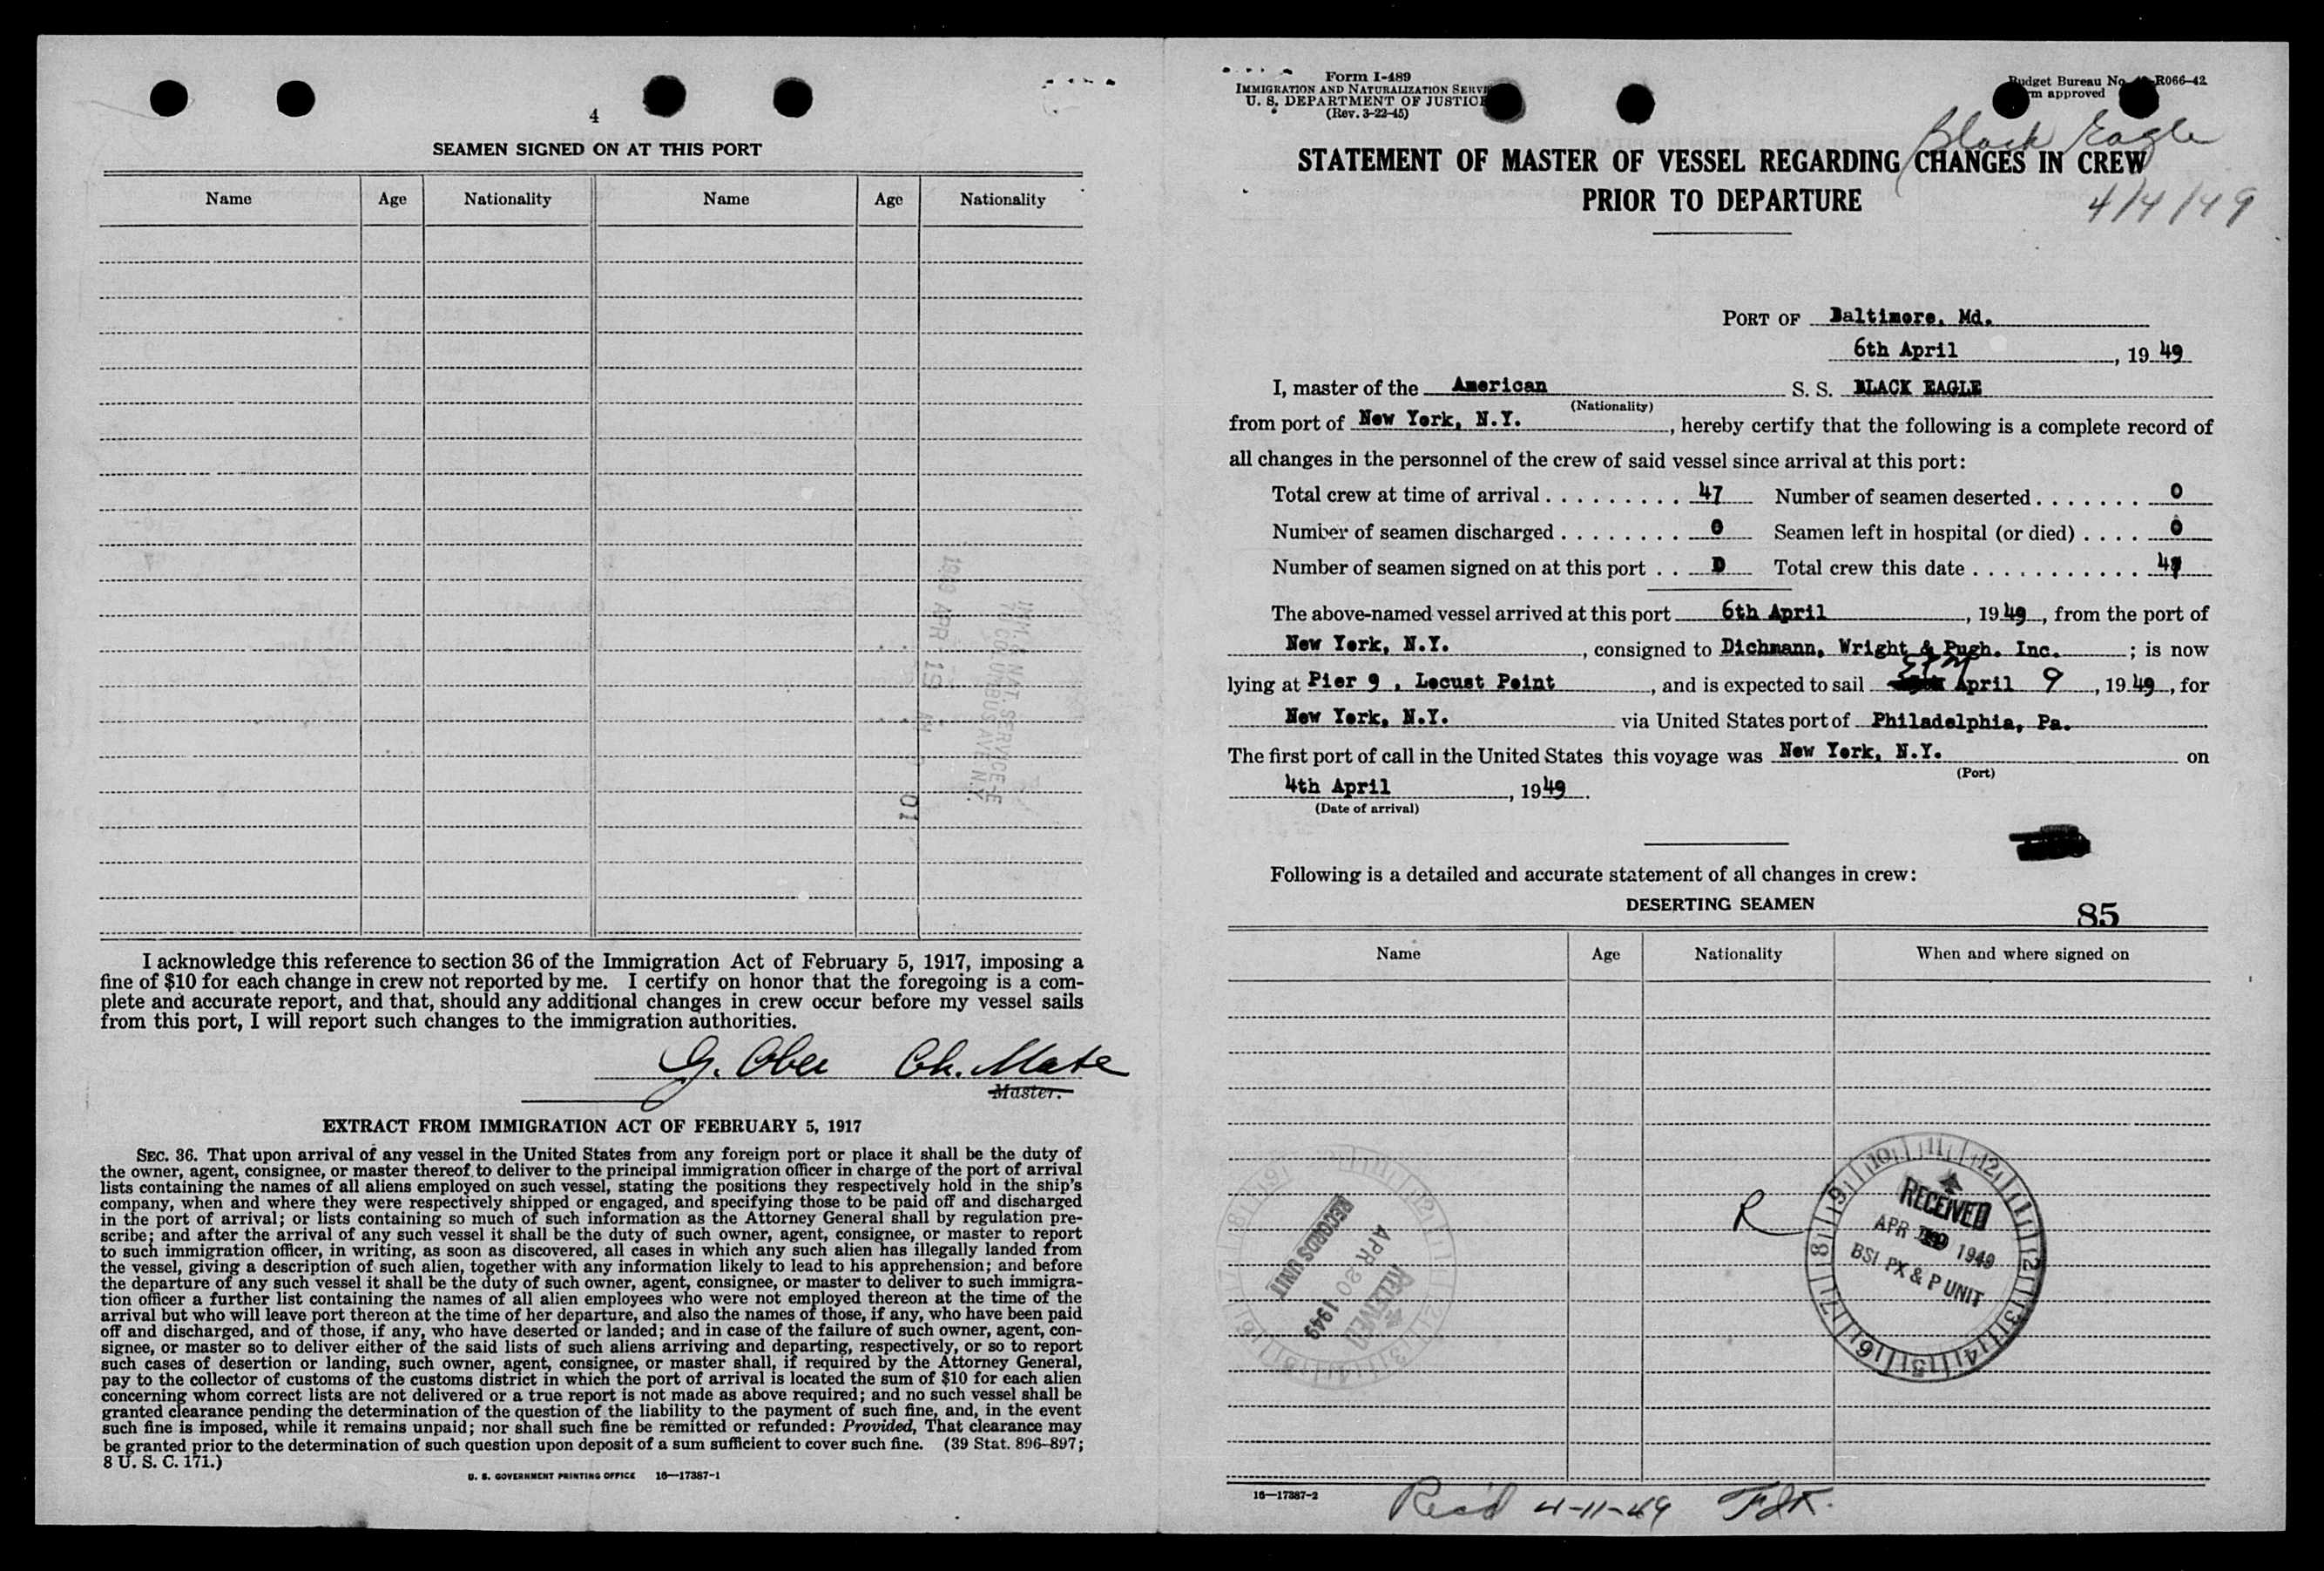 4
SEAMEN SIGNED ON AT THIS PORT
Name Age Nationality Name Age Nationality
I acknowledge this reference to section 36 of the Immigration Act of February 5, 1917, imposing a
fine of $10 for each change in crew not reported by me. I certify on honor that the foregoing is a com-
plete and accurate report, and that, should any additional changes in crew occur before my vessel sails
from this port, I will report such changes to the immigration authorities.
G. Ober Ch. Mate
Master.
EXTRACT FROM IMMIGRATION ACT OF FEBRUARY 5, 1917
SEC. 36. That upon arrival of any vessel in the United States from any foreign port or place it shall be the duty of
the owner, agent, consignee, or master thereof to deliver to the principal immigration officer in charge of the port of arrival
lists containing the names of all aliens employed on such vessel, stating the positions they respectively hold in the ship's
company, when and where they were respectively shipped or engaged, and specifying those to be paid off and discharged
in the port of arrival; or lists containing so much of such information as the Attorney General shall by regulation pre-
scribe; and after the arrival of any such vessel it shall be the duty of such owner, agent, consignee, or master to report
to such immigration officer, in writing, as soon as discovered, all cases in which any such alien has illegally landed from
the vessel, giving a description of such alien, together with any information likely to lead to his apprehension; and before
the departure of any such vessel it shall be the duty of such owner, agent, consignee, or master to deliver to such immigra-
tion officer a further list containing the names of all alien employees who were not employed thereon at the time of the
arrival but who will leave port thereon at the time of her departure, and also the names of those, if any, who have been paid
off and discharged, and of those, if any, who have deserted or landed; and in case of the failure of such owner, agent, con-
signee, or master so to deliver either of the said lists of such aliens arriving and departing, respectively, or so to report
such cases of desertion or landing, such owner, agent, consignee, or master shall, if required by the Attorney General,
pay to the collector of customs of the customs district in which the port of arrival is located the sum of $10 for each alien
concerning whom correct lists are not delivered or a true report is not made as above required; and no such vessel shall be
granted clearance pending the determination of the question of the liability to the payment of such fine, and, in the event
such fine is imposed, while it remains unpaid; nor shall such fine be remitted or refunded: Provided, That clearance may
be granted prior to the determination of such question upon deposit of a sum sufficient to cover such fine. (39 Stat. 896-897;
8 U. S. C. 171.)
U. S. GOVERNMENT PRINTING OFFICE 16—17387-1
Form I-489
IMMIGRATION AND NATURALIZATION
U. S. DEPARTMENT OF JUSTICE
(Rev. 3-22-45)
Budget Bureau No. R066-42
approved
Black Eagle
4/4/49
STATEMENT OF MASTER OF VESSEL REGARDING CHANGES IN CREW
PRIOR TO DEPARTURE
PORT OF Baltimore, Md.
6th April, 1949
I, master of the American S. S. BLACK EAGLE
(Nationality)
from port of New York, N.Y., hereby certify that the following is a complete record of
all changes in the personnel of the crew of said vessel since arrival at this port:
Total crew at time of arrival . . . . . . . . . 47 Number of seamen deserted . . . . . . . 0
Number of seamen discharged . . . . . . . . 0 Seamen left in hospital (or died) . . . . 0
Number of seamen signed on at this port . . 0 Total crew this date . . . . . . . . . . . . 47
The above-named vessel arrived at this port 6th April, 1949, from the port of
New York, N.Y., consigned to Dichmann, Wright & Pugh. Inc.; is now
lying at Pier 9 , Locust Point, and is expected to sail April 9, 1949, for
New York, N.Y. via United States port of Philadelphia, Pa.
The first port of call in the United States this voyage was New York, N.Y. on
(Port)
4th April, 1949.
(Date of arrival)
Following is a detailed and accurate statement of all changes in crew:
DESERTING SEAMEN
85
Name Age Nationality When and where signed on
R
RECEIVED
APR 1949
BSI PX & P UNIT
RECORDS UNIT
APR 20 1949
RECEIVED
16—17387-2
Rec'd 4-11-49